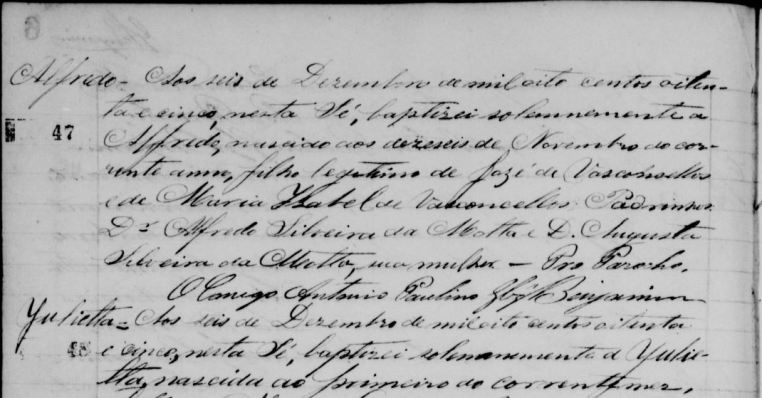 Alfredo - Aos seis de Dezembro de mil oito centos oiten-
ta e cinco, nesta Sé, baptizei solemnemente a
47
Alfredo, nascido aos dezeseis de Novembro do cor-
rente anno, filho legitimo de José de Vasconsellos
e de Maria Izabel de Vasconcellos. Padrinhos
Dr Alfredo Silveira da Motta e D. Augusta
Silveira da Motta, sua mulher - Pro Parocho.
O Conego Antonio Paulino Benjamin
Yulietta = Aos seis de Dezembro de mil oito centos oitenta
48 e cinco, nesta Sé, baptizei solemnemente a Yulie-
tta, nascida ao primeiro do corrente mez,